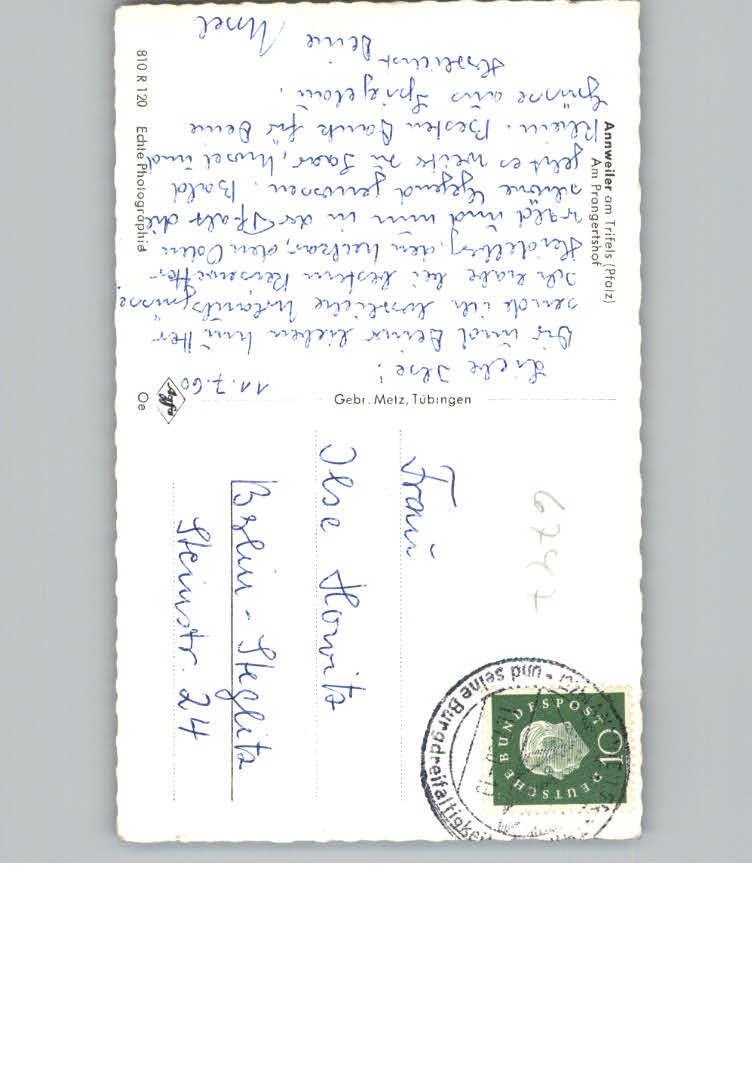 Annweiler am Trifels (Pfalz)
Am Prangertshof
11.7.60
Liebe Ilse!
Dir und Deiner lieben Mutter
sende ich herzliche Urlaubsgrüsse
Ich habe bei bestem Reisewetter
Heidelberg, den Neckar, den Oden
wald und nun in der Pfalz die
schöne Gegend genossen. Bald
geht es weiter zu Saar, Mosel und
Rhein. Besten Dank für Deine
Grüsse aus Spiegelau.
Herzlichst
Deine Ursel
810 R 120 Echte Photographie
Agfa
Oe
Gebr. Metz, Tübingen
Frau
Ilse Horwitz
Berlin-Steglitz
Steinstr. 24
6747
DEUTSCHE BUNDESPOST
10
und seine Burgdreifaltigkeit